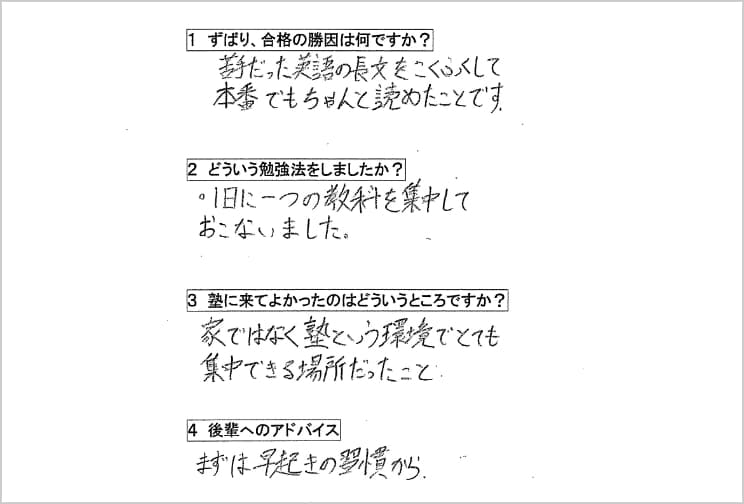 1 ずばり、合格の勝因は何ですか?
苦手だった英語の長文をこくふくして
本番でもちゃんと読めたことです.
2 どういう勉強法をしましたか?
・1日に一つの教科を集中して
おこないました。
3 塾に来てよかったのはどういうところですか?
家ではなく塾という環境でとても
集中できる場所だったこと.
4 後輩へのアドバイス
まずは早起きの習慣から.